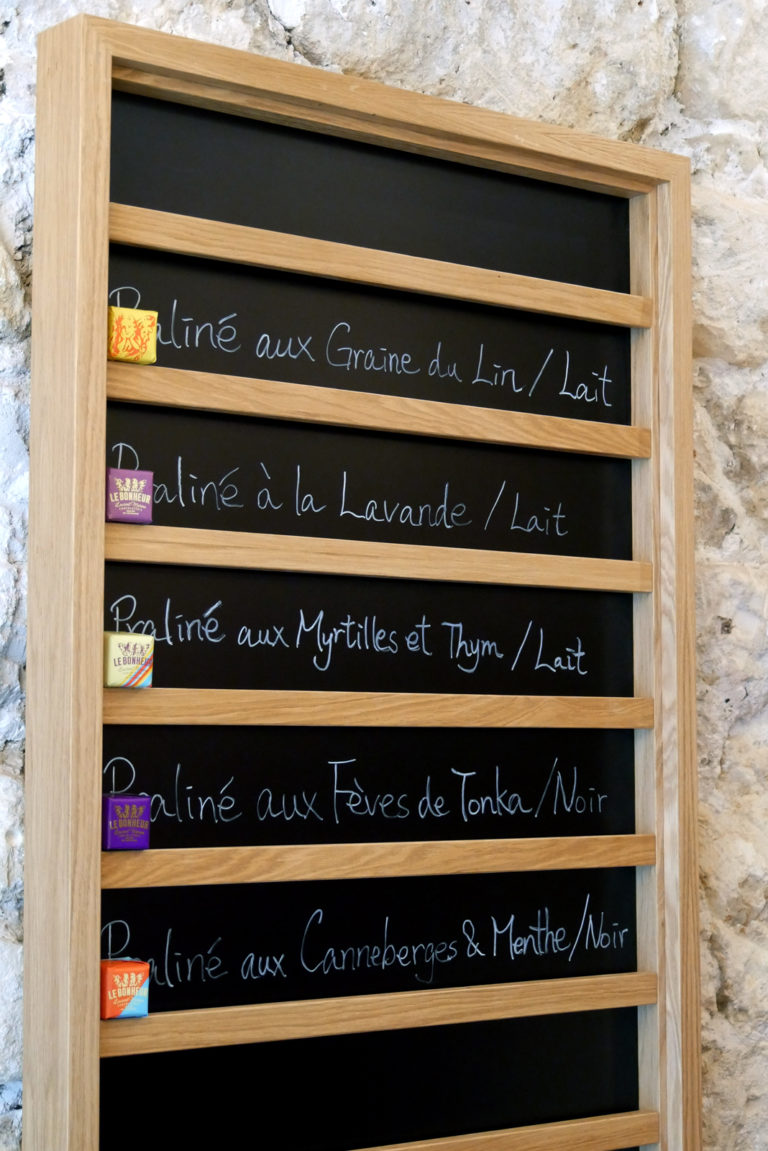 Praliné aux Graine du Lin / Lait
Praliné à la Lavande / Lait
LE BONHEUR
Praliné aux Myrtilles et Thym / Lait
LE BONHEUR
Praliné aux Fèves de Tonka / Noir
LE BONHEUR
Praliné aux Canneberges & Menthe / Noir
LE BONHEUR